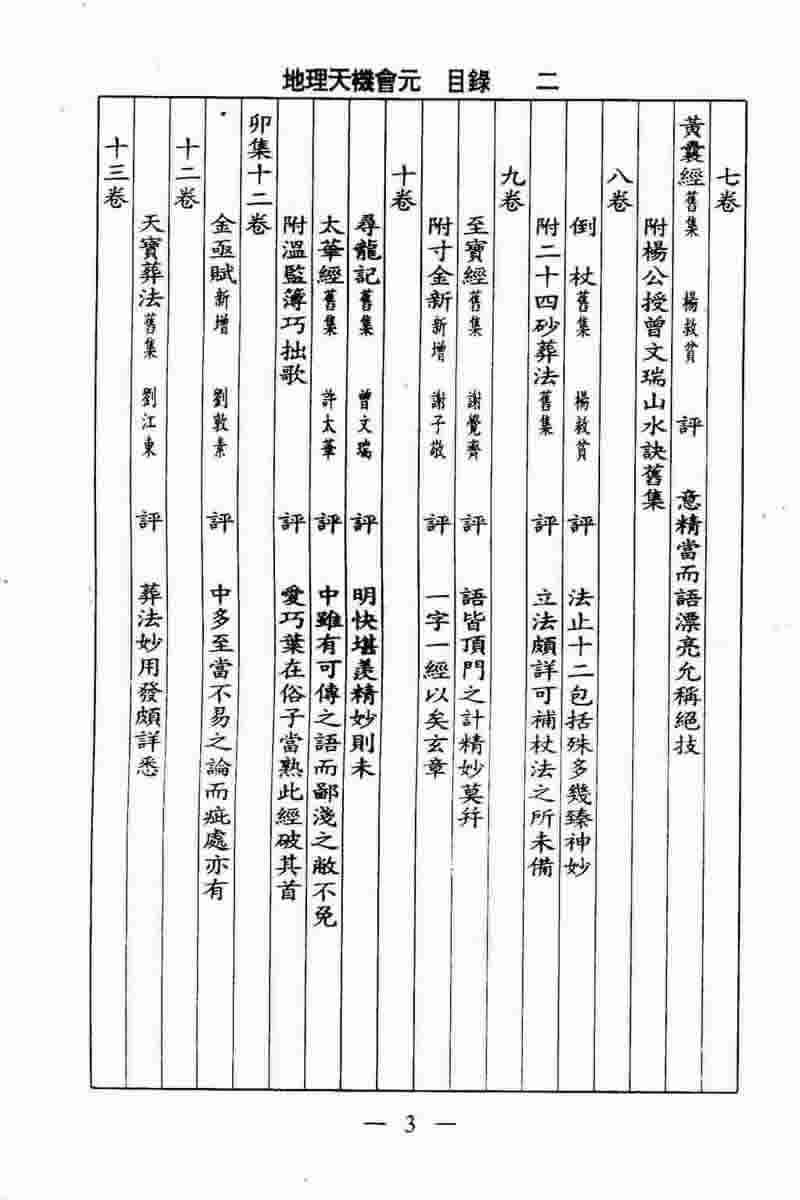 地理天機會元 目錄 二
七卷
黃囊經舊集 楊救貧 評 意精當而語漂亮允稱絕技
附楊公授曾文瑞山水訣舊集
八卷
倒杖舊集 楊救貧 評 法止十二包括殊多幾臻神妙
附二十四砂葬法舊集 評 立法頗詳可補杖法之所未備
九卷
至寶經舊集 謝覺齊 評 語皆頂門之計精妙莫幷
附寸金新新增 謝子敬 評 一字一經以矣玄章
十卷
尋龍記舊集 曾文瑞 評 明快堪羨精妙則未
太華經舊集 許太華 評 中雖有可傳之語而鄙淺之敝不免
附溫監簿巧拙歌 評 愛巧葉在俗子當熟此經破其首
卯集十二卷
金亟賦新增 劉敦素 評 中多至當不易之論而疵處亦有
十二卷
天寶葬法舊集 劉江東 評 葬法妙用發頗詳悉
十三卷
— 3 —